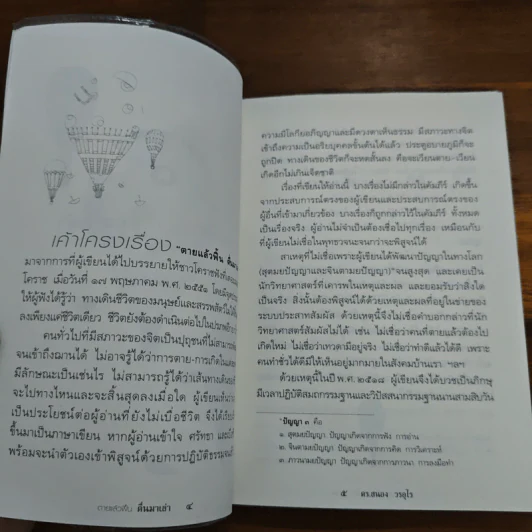 เค้าโครงเรื่อง "ตายแล้วฟื้น
มาจากการที่ผู้เขียนได้ไปบรรยายให้ชาวโคราชฟังที่
โคราช เมื่อวันที่ ๑๗ พฤษภาคม พ.ศ. ๒๕๕๑ โดยมี
ให้ผู้ฟังได้รู้ว่า ทางเดินชีวิตของมนุษย์และสรรพสัตว์
ลงเพียงแค่ชีวิตเดียว ชีวิตยังต้องดำเนินต่อไปใน
คนทั่วไปที่มีสภาวะของจิตเป็นปุถุชนที่ไม่สามารถ
จนเข้าถึงฌานได้ ไม่อาจรู้ได้ว่าการตาย-การเกิดใน
มีลักษณะเป็นเช่นไร ไม่สามารถรู้ได้ว่าเส้นทางเดิน
จะไปทางไหนและจะสิ้นสุดลงเมื่อใด ผู้เขียนเห็นว่า
เป็นประโยชน์ต่อผู้อ่านที่ยังไม่เบื่อชีวิต จึงได้เรียบ
ขึ้นมาเป็นภาษาเขียน หากผู้อ่านเข้าใจ ศรัทธา และ
พร้อมจะนำตัวเองเข้าพิสูจน์ด้วยการปฏิบัติธรรมจน
ตายแล้วฟื้น ตื่นมาเล่า ๔
ความมีโลกียอภิญญาและมีดวงตาเห็นธรรม มีสภาวะทางจิต
เข้าถึงความเป็นอริยบุคคลขั้นต้นได้แล้ว ประตูอบายภูมิก็จะ
ถูกปิด ทางเดินของชีวิตก็จะหดสั้นลง คือจะเวียนตาย-เวียน
เกิดอีกไม่เกินเจ็ดชาติ
เรื่องที่เขียนให้อ่านนี้ บางเรื่องไม่มีกล่าวในคัมภีร์ เกิดขึ้น
จากประสบการณ์ตรงของผู้เขียนและประสบการณ์ตรงของ
ผู้อื่นที่เข้ามาเกี่ยวข้อง บางเรื่องก็ถูกกล่าวไว้ในคัมภีร์ ทั้งหมด
เป็นเรื่องจริง ผู้อ่านไม่จำเป็นต้องเชื่อไปทุกเรื่อง เหมือนกับ
ที่ผู้เขียนไม่เชื่อในพุทธวจนะจนกว่าจะพิสูจน์ได้
สาเหตุที่ไม่เชื่อเพราะผู้เขียนได้พัฒนาปัญญาในทางโลก
(สุตมยปัญญาและจินตามยปัญญา)*จนสูงสุด และเคยเป็น
นักวิทยาศาสตร์ที่เคารพในเหตุและผล และยอมรับว่าสิ่งใด
เป็นจริง สิ่งนั้นต้องพิสูจน์ได้ด้วยเหตุและผลที่อยู่ในข่ายของ
ระบบประสาทสัมผัส ด้วยเหตุนี้จึงไม่เชื่อคำบอกกล่าวที่นัก
วิทยาศาสตร์สัมผัสไม่ได้ เช่น ไม่เชื่อว่าคนที่ตายแล้วต้องไป
เกิดใหม่ ไม่เชื่อว่าเทวดามีอยู่จริง ไม่เชื่อว่าทำดีแล้วได้ดี เพราะ
คนทำชั่วได้ดีมีให้เห็นอยู่มากมายในสังคมบ้านเรา ฯลฯ
ด้วยเหตุนี้ในปี พ.ศ. ๒๕๑๘ ผู้เขียนจึงได้บวชเป็นภิกษุ
มีเวลาปฏิบัติสมถกรรมฐานและวิปัสสนากรรมฐานนานสามสิบวัน
* ปัญญา ๓ คือ
๑. สุตมยปัญญา ปัญญาเกิดจากการฟัง การอ่าน
๒. จินตามยปัญญา ปัญญาเกิดจากการคิด การวิเคราะห์
๓. ภาวนามยปัญญา ปัญญาเกิดจากการภาวนา การลงมือทำ
๕ ดร.สนอง วรอุไร